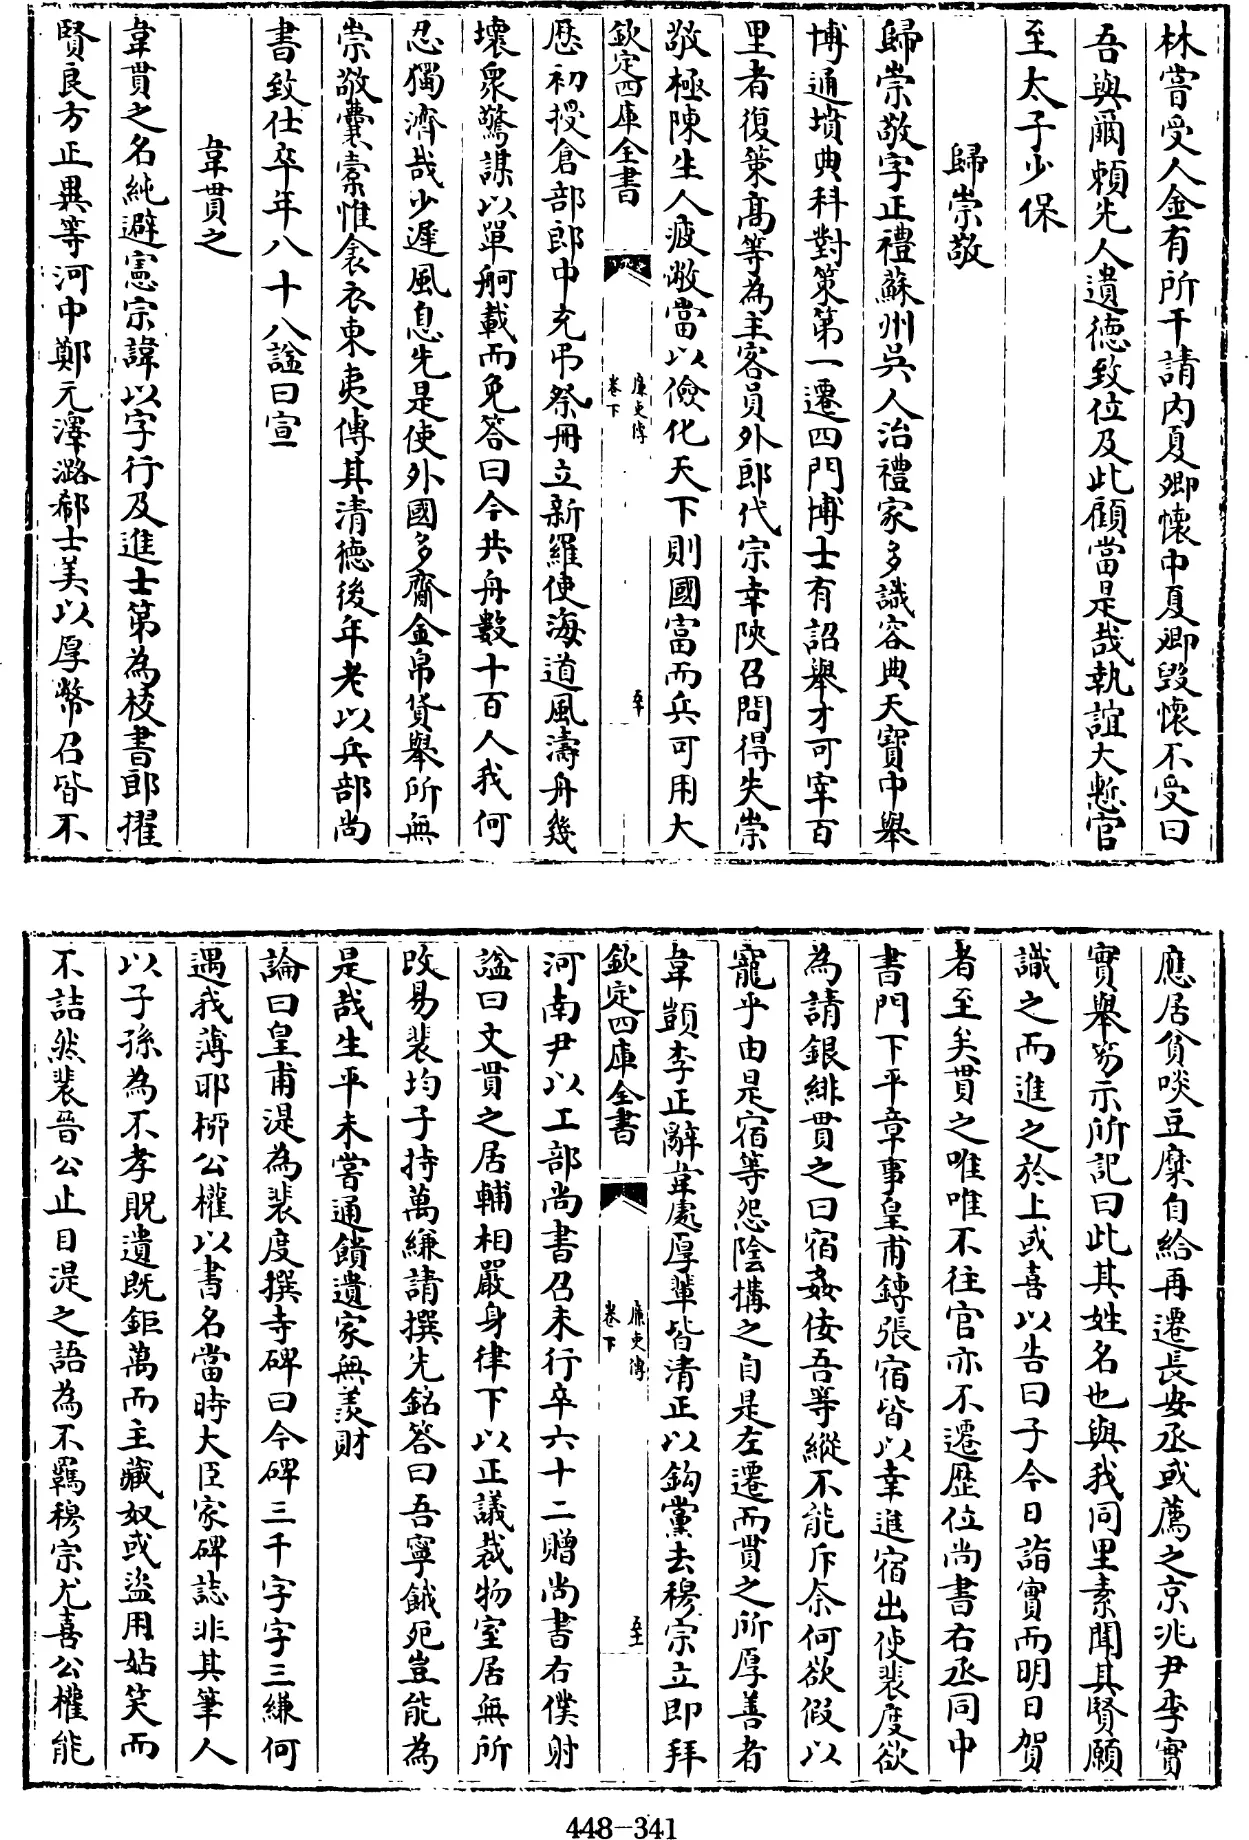 林嘗受人金有所干請内夏卿懷中夏卿毀懷不受曰
吾與爾賴先人遺德致位及此顧當是哉執誼大慙官
至太子少保
歸崇敬
歸崇敬字正禮蘇州吳人治禮家多識容典天寶中舉
博通墳典科對策第一遷四門博士有詔舉才可宰百
里者復策高等為主客員外郎代宗幸陜召問得失崇
敬極陳生人疲敝當以儉化天下則國富而兵可用大
欽定四庫全書
廉吏傳
卷下
歷初授倉部郎中充弔祭冊立新羅使海道風濤舟幾
壞衆驚謀以單舸載而免答曰今共舟數十百人我何
忍獨濟哉少遲風息先是使外國多齎金帛貿舉所無
崇敬囊橐惟衾衣東夷傳其清德後年老以兵部尚
書致仕卒年八十八諡曰宣
韋貫之
韋貫之名純避憲宗諱以字行及進士第為校書郎擢
賢良方正異等河中鄭元澤潞郗士美以厚幣召皆不
應居貧啖豆糜自給再遷長安丞或薦之京兆尹李實
實舉笏示所記曰此其姓名也與我同里素聞其賢願
識之而進之於上或喜以告曰子今日詣實而明日賀
者至矣貫之唯唯不往官亦不遷歷位尚書右丞同中
書門下平章事皇甫鎛張宿皆以幸進宿出使裴度欲
為請銀緋貫之曰宿姦佞吾等縱不能斥奈何欲假以
寵乎由是宿等怨陰搆之自是左遷而貫之所厚善者
韋顗李正辭韋處厚輩皆清正以鈎黨去穆宗立即拜
欽定四庫全書
廉吏傳
卷下
河南尹以工部尚書召未行卒六十二贈尚書右僕射
諡曰文貫之居輔相嚴身律下以正議裁物室居無所
改易裴均子持萬縑請撰先銘答曰吾寧餓死豈能為
是哉生平未嘗通饋遺家無羨財
論曰皇甫湜為裴度撰寺碑曰今碑三千字字三縑何
遇我薄耶柳公權以書名當時大臣家碑誌非其筆人
以子孫為不孝貺遺既鉅萬而主藏奴或盜用姑笑而
不詰然裴晉公止目湜之語為不羈穆宗尤喜公權能
448-341